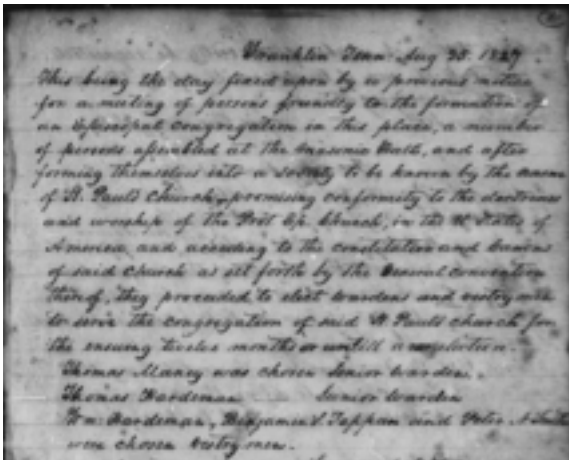 Franklin Tenn. Aug 25. 1827
This being the day fixed upon by a previous notice
for a meeting of persons friendly to the formation of
an Episcopal congregation in this place, a number
of persons assembled at the Masonic Hall, and after
forming themselves into a society to be known by the name
of St. Pauls Church, promising conformity to the doctrines
and worship of the Prot. Ep. Church, in the U. States of
America and according to the constitution and Canons
of said church as set forth by the General convention
thereof, they proceeded to elect wardens and vestry men
to serve the congregation of said St Pauls church for
the ensuing twelve months or untill a new election.
Thomas Maney was chosen Senior warden.
Thomas Hardeman Junior warden
Wm. Hardeman, Benjamin S. Tappan and Peter N. Smith
were chosen vestrymen.